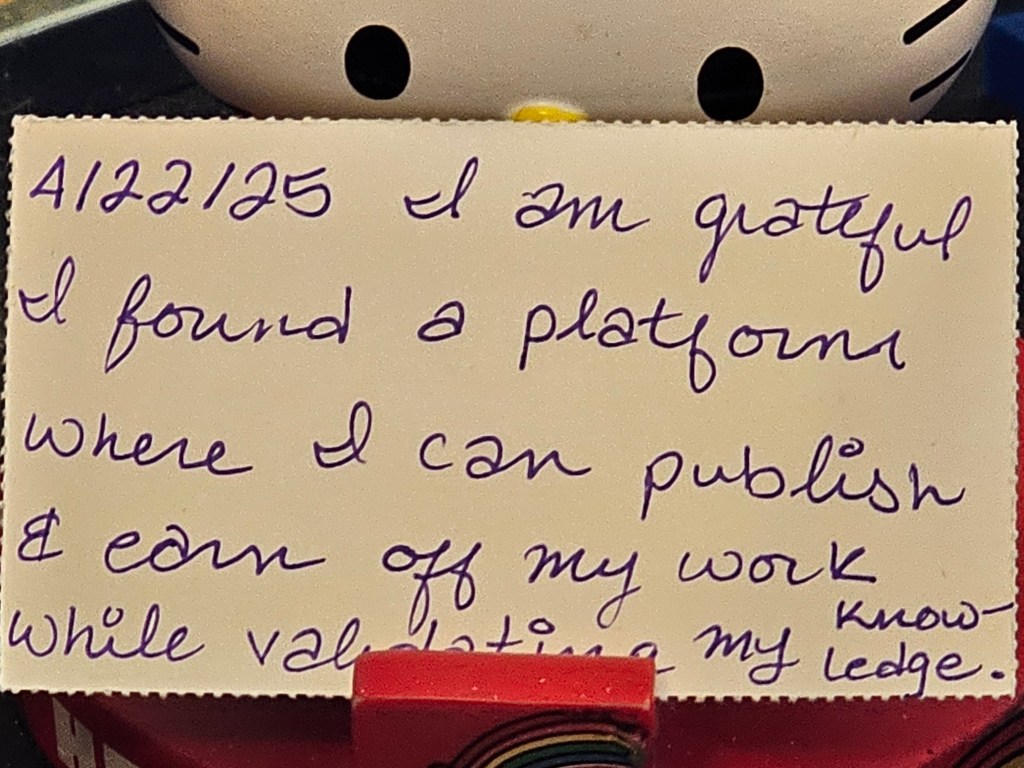 4/22/25 I am grateful
I found a platform
where I can publish
& earn off my work
while validating my know-
ledge.